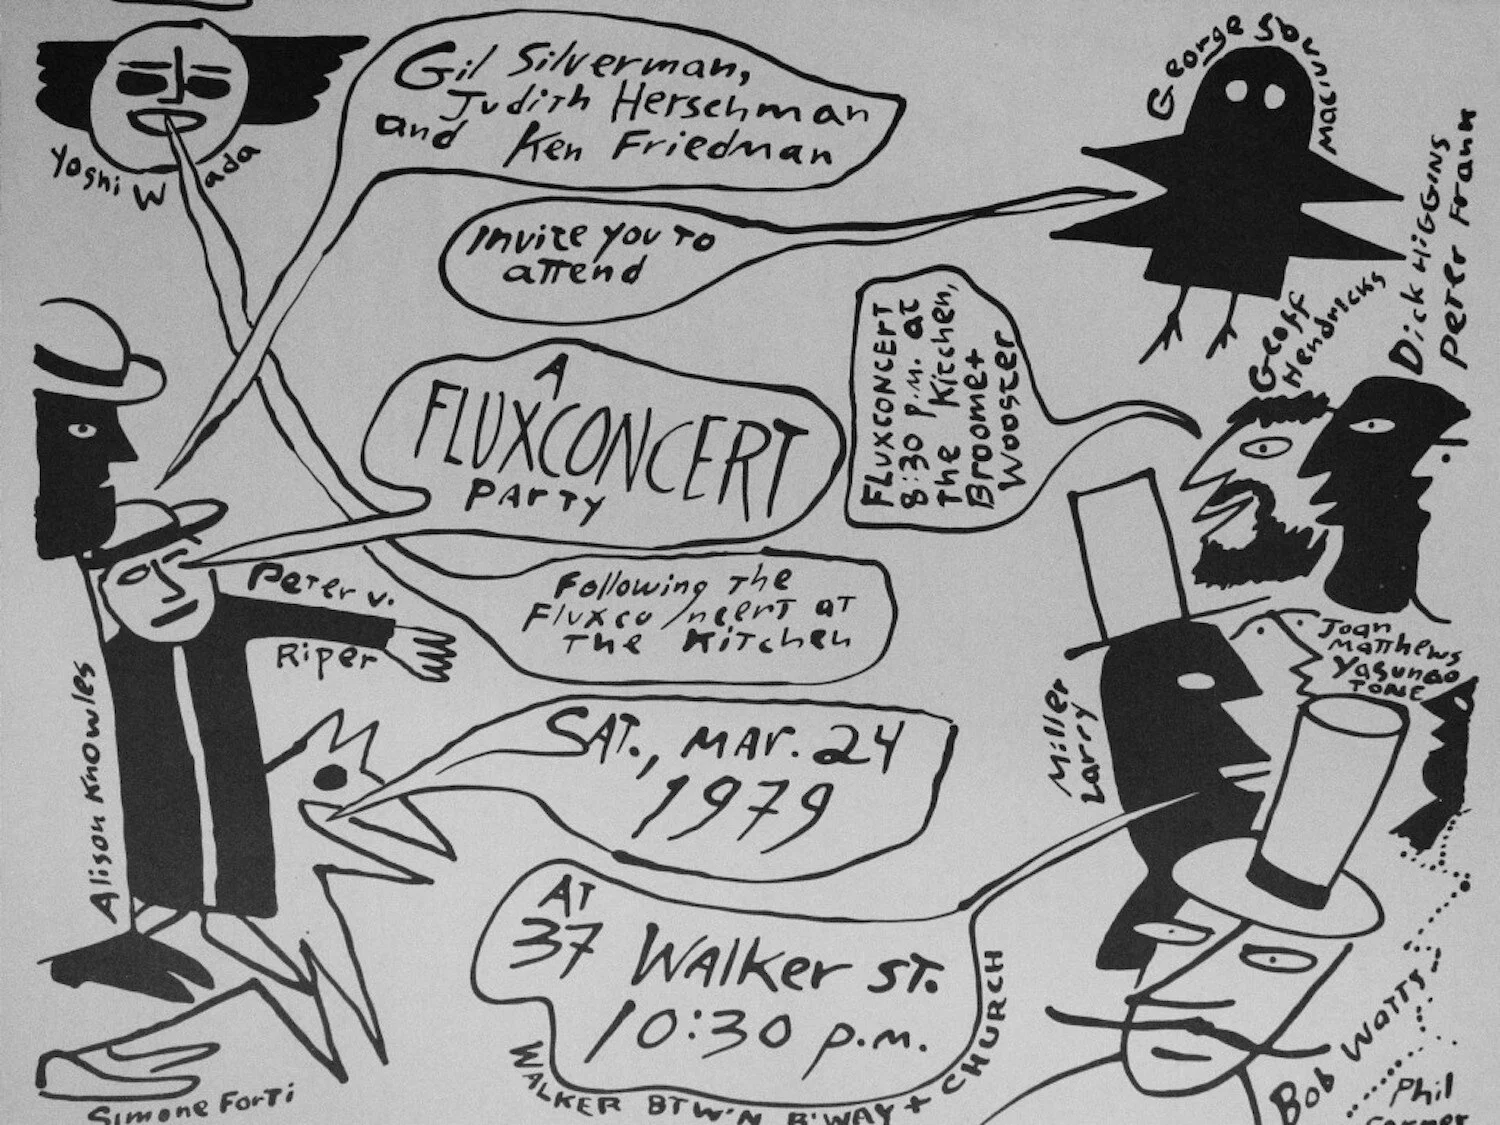 Gil Silverman,
Judith Herschman
and Ken Friedman
Yoshi Wada
George Sbunimacinas
Invite you to
attend
Dick HIGGINS
Peter Frank
Geoff
Hendricks
FLUXCONCERT
8:30 p.m. at
The Kitchen,
Broome+
Wooster
A
FLUXCONCERT
PARTY
Peter v.
Riper
Following the
Fluxconcert at
The Kitchen
Joan
Matthews
Yasunao
TONE
Alison Knowles
Miller
Larry
SAT., MAR. 24
1979
AT
37 Walker st.
10:30 p.m.
WALKER BTW'N B'WAY + CHURCH
Simone Forti
Bob Watts
Phil
Corner